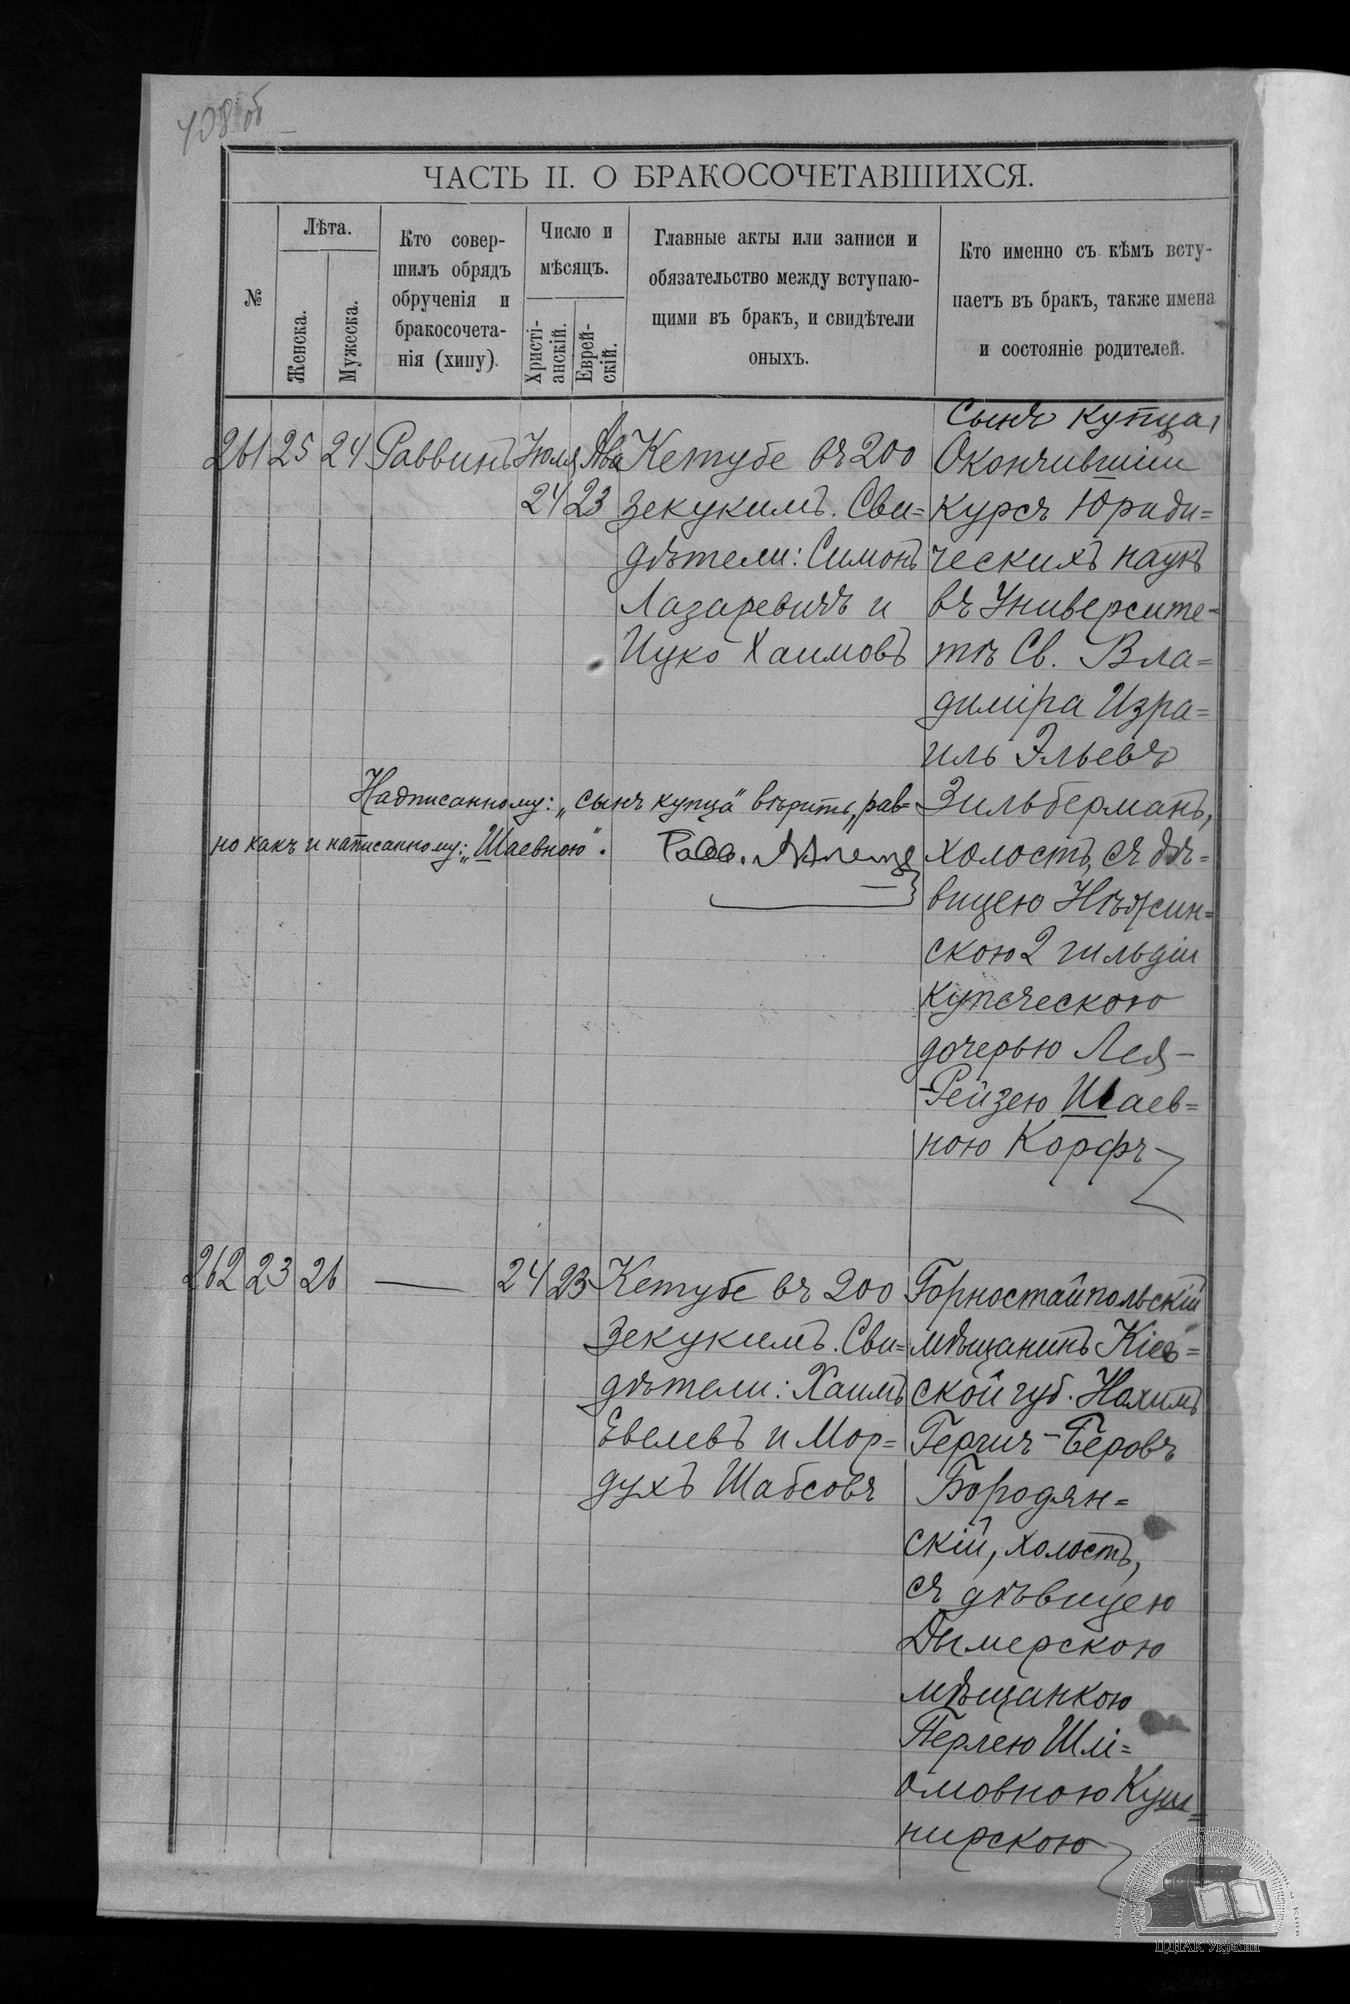 408 об
ЧАСТЬ II. О БРАКОСОЧЕТАВШИХСЯ.
№
Лѣта.
Женска.
Мужеска.
Кто совер-
шилъ обрядъ
обрученія и
бракосочета-
нія (хипу).
Число и
мѣсяцъ.
Христі-
анскій.
Еврей-
скій.
Главные акты или записи и
обязательство между вступаю-
щими въ бракъ, и свидѣтели
оныхъ.
Кто именно съ кѣмъ всту-
паетъ въ бракъ, также имена
и состояніе родителей.
261 25 24 Раввинъ
Іюля
24
Ава
23
Кетубе въ 200
зекукимъ. Сви=
дѣтели: Симонъ
Лазаревичъ и
Ицко Хаимовъ
Сынъ купца,
Окончившій
курсъ Юриди=
ческихъ наукъ
въ Университе=
тѣ Св. Вла=
диміра Изра=
иль Эльевъ
Зильберманъ,
холостъ, съ дѣ=
вицею Нѣжин=
скою 2 гильдіи
купеческою
дочерью Лея-
-Рейзею Шаев=
ною Корфъ
Надписанному: „сынъ купца" вѣрить, рав=
но какъ и написанному: „Шаевною".
Равв.
262 23 26 — 24 23
Кетубе въ 200
Зекукимъ. Сви=
дѣтели: Хаимъ
Евелевъ и Мор=
духъ Шабсовъ
Горностайпольскій
мѣщанинъ Кіев=
ской губ. Нахимъ
Герчих-Беровъ
Бородян=
скій, холостъ,
съ дѣвицею
Дымерскою
мѣщанкою
Перлею Шлі=
омовною Куш=
нирскою
ЦДІАК України